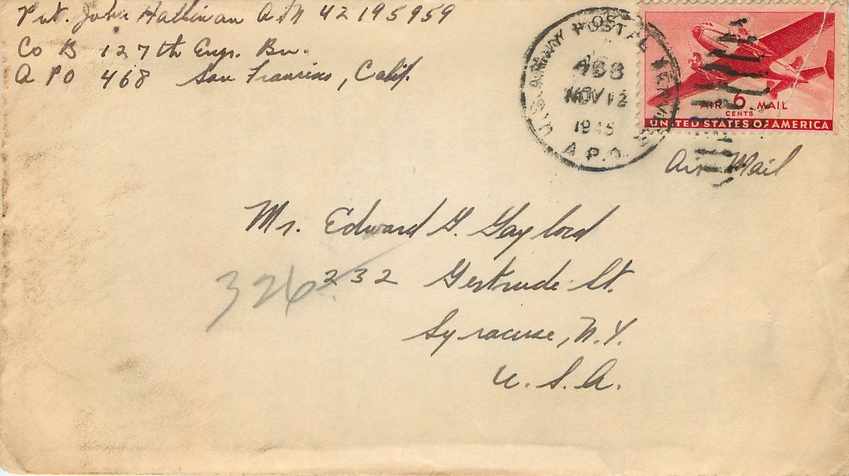 Pvt. John Hallinan ASN 42195959
Co B 127th Engr. Bn.
APO 468 San Francisco, Calif.
U.S. ARMY POSTAL SERVICE
468
NOV 12
1945
A.P.O.
AIR 6 MAIL
CENTS
UNITED STATES OF AMERICA
Air Mail
Mr. Edward G. Gaylord
326
232 Gertrude St.
Syracuse, N.Y.
U.S.A.